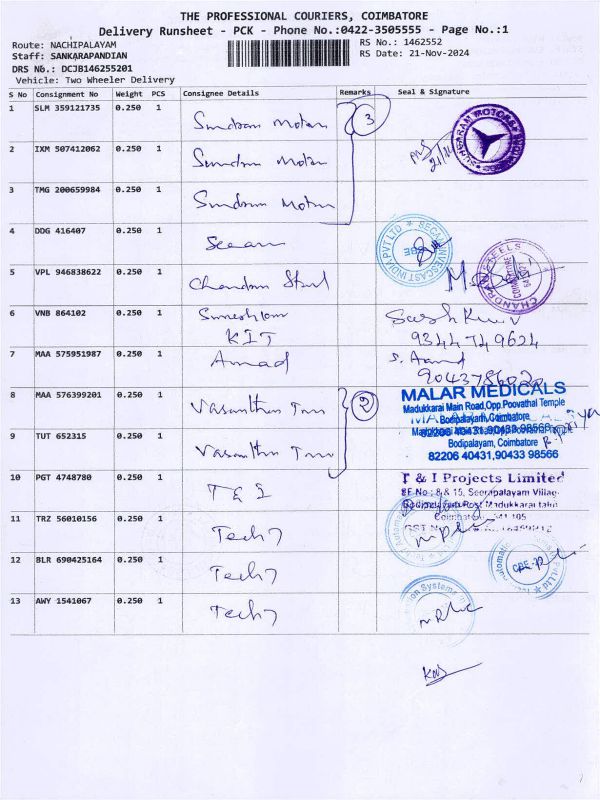 THE PROFESSIONAL COURIERS, COIMBATORE
Delivery Runsheet - PCK - Phone No.:0422-3505555 - Page No.:1
Route: NACHIPALAYAM
RS No.: 1462552
Staff: SANKARAPANDIAN
RS Date: 21-Nov-2024
DRS No.: DCJB146255201
Vehicle: Two Wheeler Delivery
S No Consignment No Weight PCS Consignee Details Remarks Seal & Signature
1 SLM 359121735 0.250 1 Sundram Motors 3
2 IXM 507412062 0.250 1 Sundram Motors
3 TMG 200659984 0.250 1 Sundram Motors
4 DDG 416407 0.250 1
SECAN INVESCAST INDIA PVT LTD
CBE
5 VPL 946838622 0.250 1 Chandran Steel
CHANDRAN STEELS
COIMBATORE
6 VNB 864102 0.250 1
KIT
9344749624
7 MAA 575951987 0.250 1 Anand S. Anand
9043786020
8 MAA 576399201 0.250 1 2
MALAR MEDICALS
Madukkarai Main Road,Opp.Poovathal Temple
Bodipalayam, Coimbatore
82206 40431,90433 98566
9 TUT 652315 0.250 1
Bodipalayam, Coimbatore
82206 40431,90433 98566
10 PGT 4748780 0.250 1 T & I
T & I Projects Limited
SF No : 8 & 15, Seerapalayam Village
11 TRZ 56010156 0.250 1 Tech 7
12 BLR 690425164 0.250 1 Tech 7
13 AWY 1541067 0.250 1 Tech 7